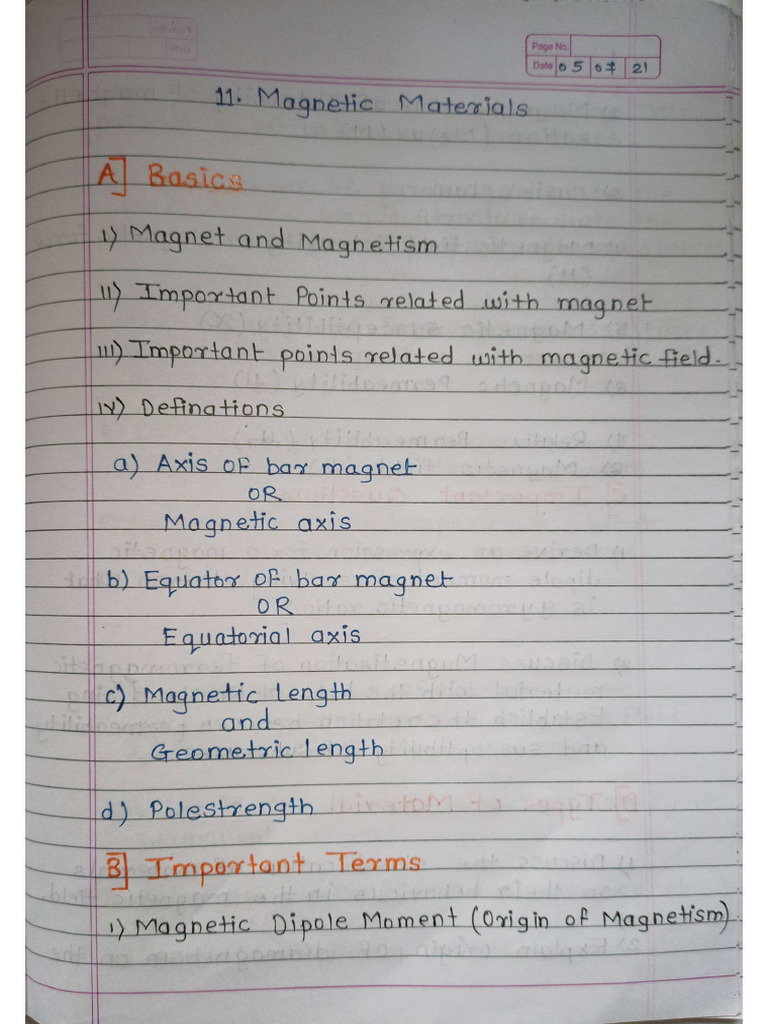 Page No.
Date 05 07 21
11. Magnetic Materials
A] Basics
i) Magnet and Magnetism
ii) Important Points related with magnet
iii) Important points related with magnetic field.
iv) Definations
a) Axis of bar magnet
OR
Magnetic axis
b) Equator of bar magnet
OR
Equatorial axis
c) Magnetic length
and
Geometric length
d) Polestrength
B] Important Terms
i) Magnetic Dipole Moment (Origin of Magnetism)